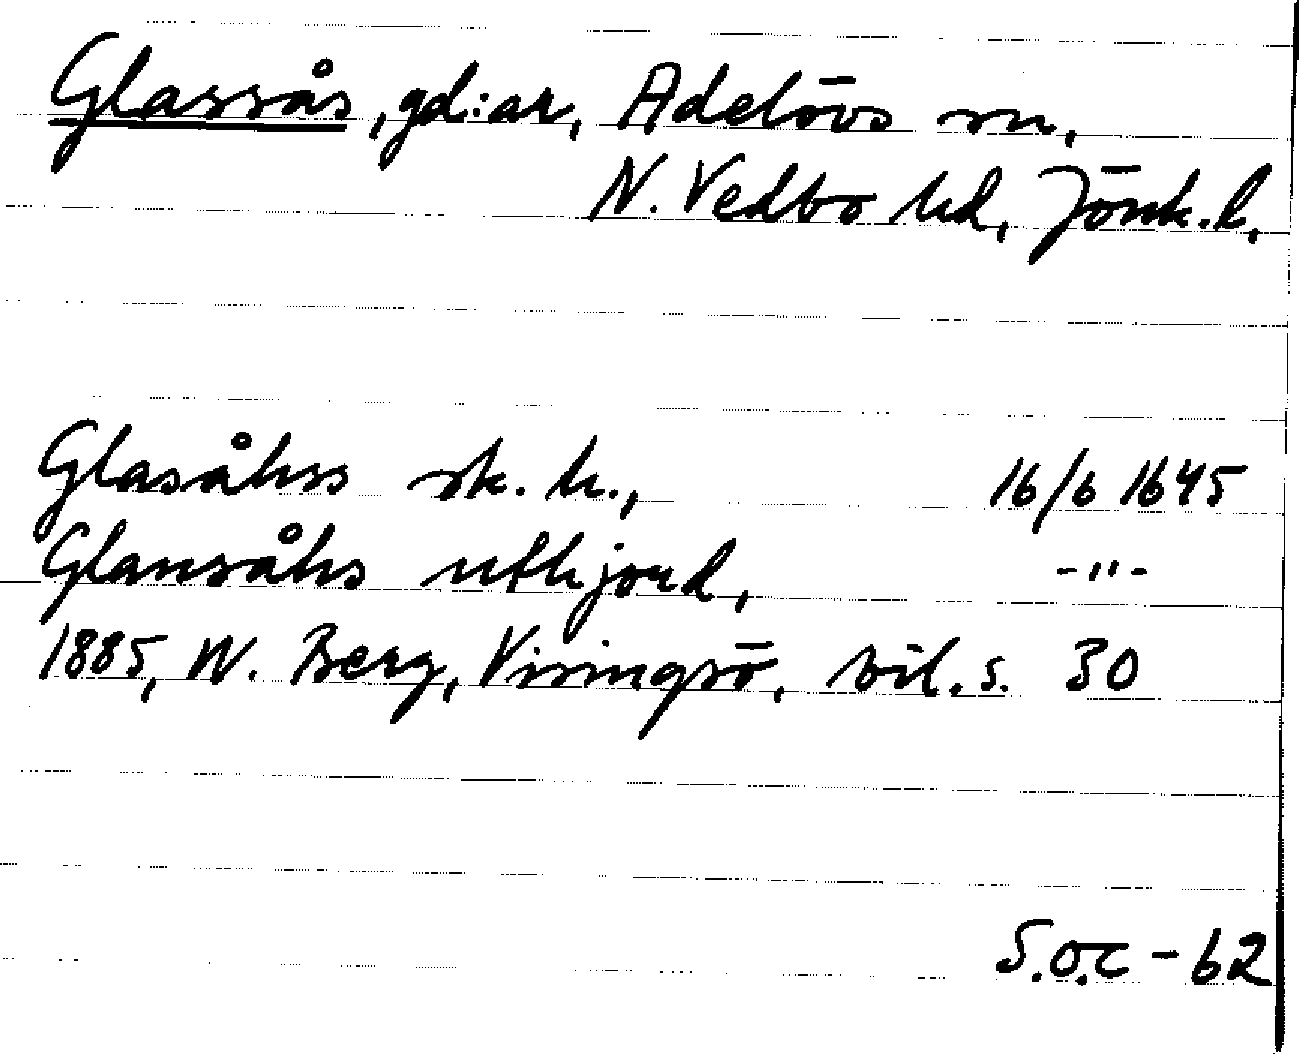 Glassås, gd:ar, Adelövs sn,
N. Vedbo hd, Jönk. l.
Glasåhss sk. h., 16/6 1645
Glansåhs uthjord, -"-
1885, W. Berg, Visingsö, bil. s. 30
S.O.C - 62